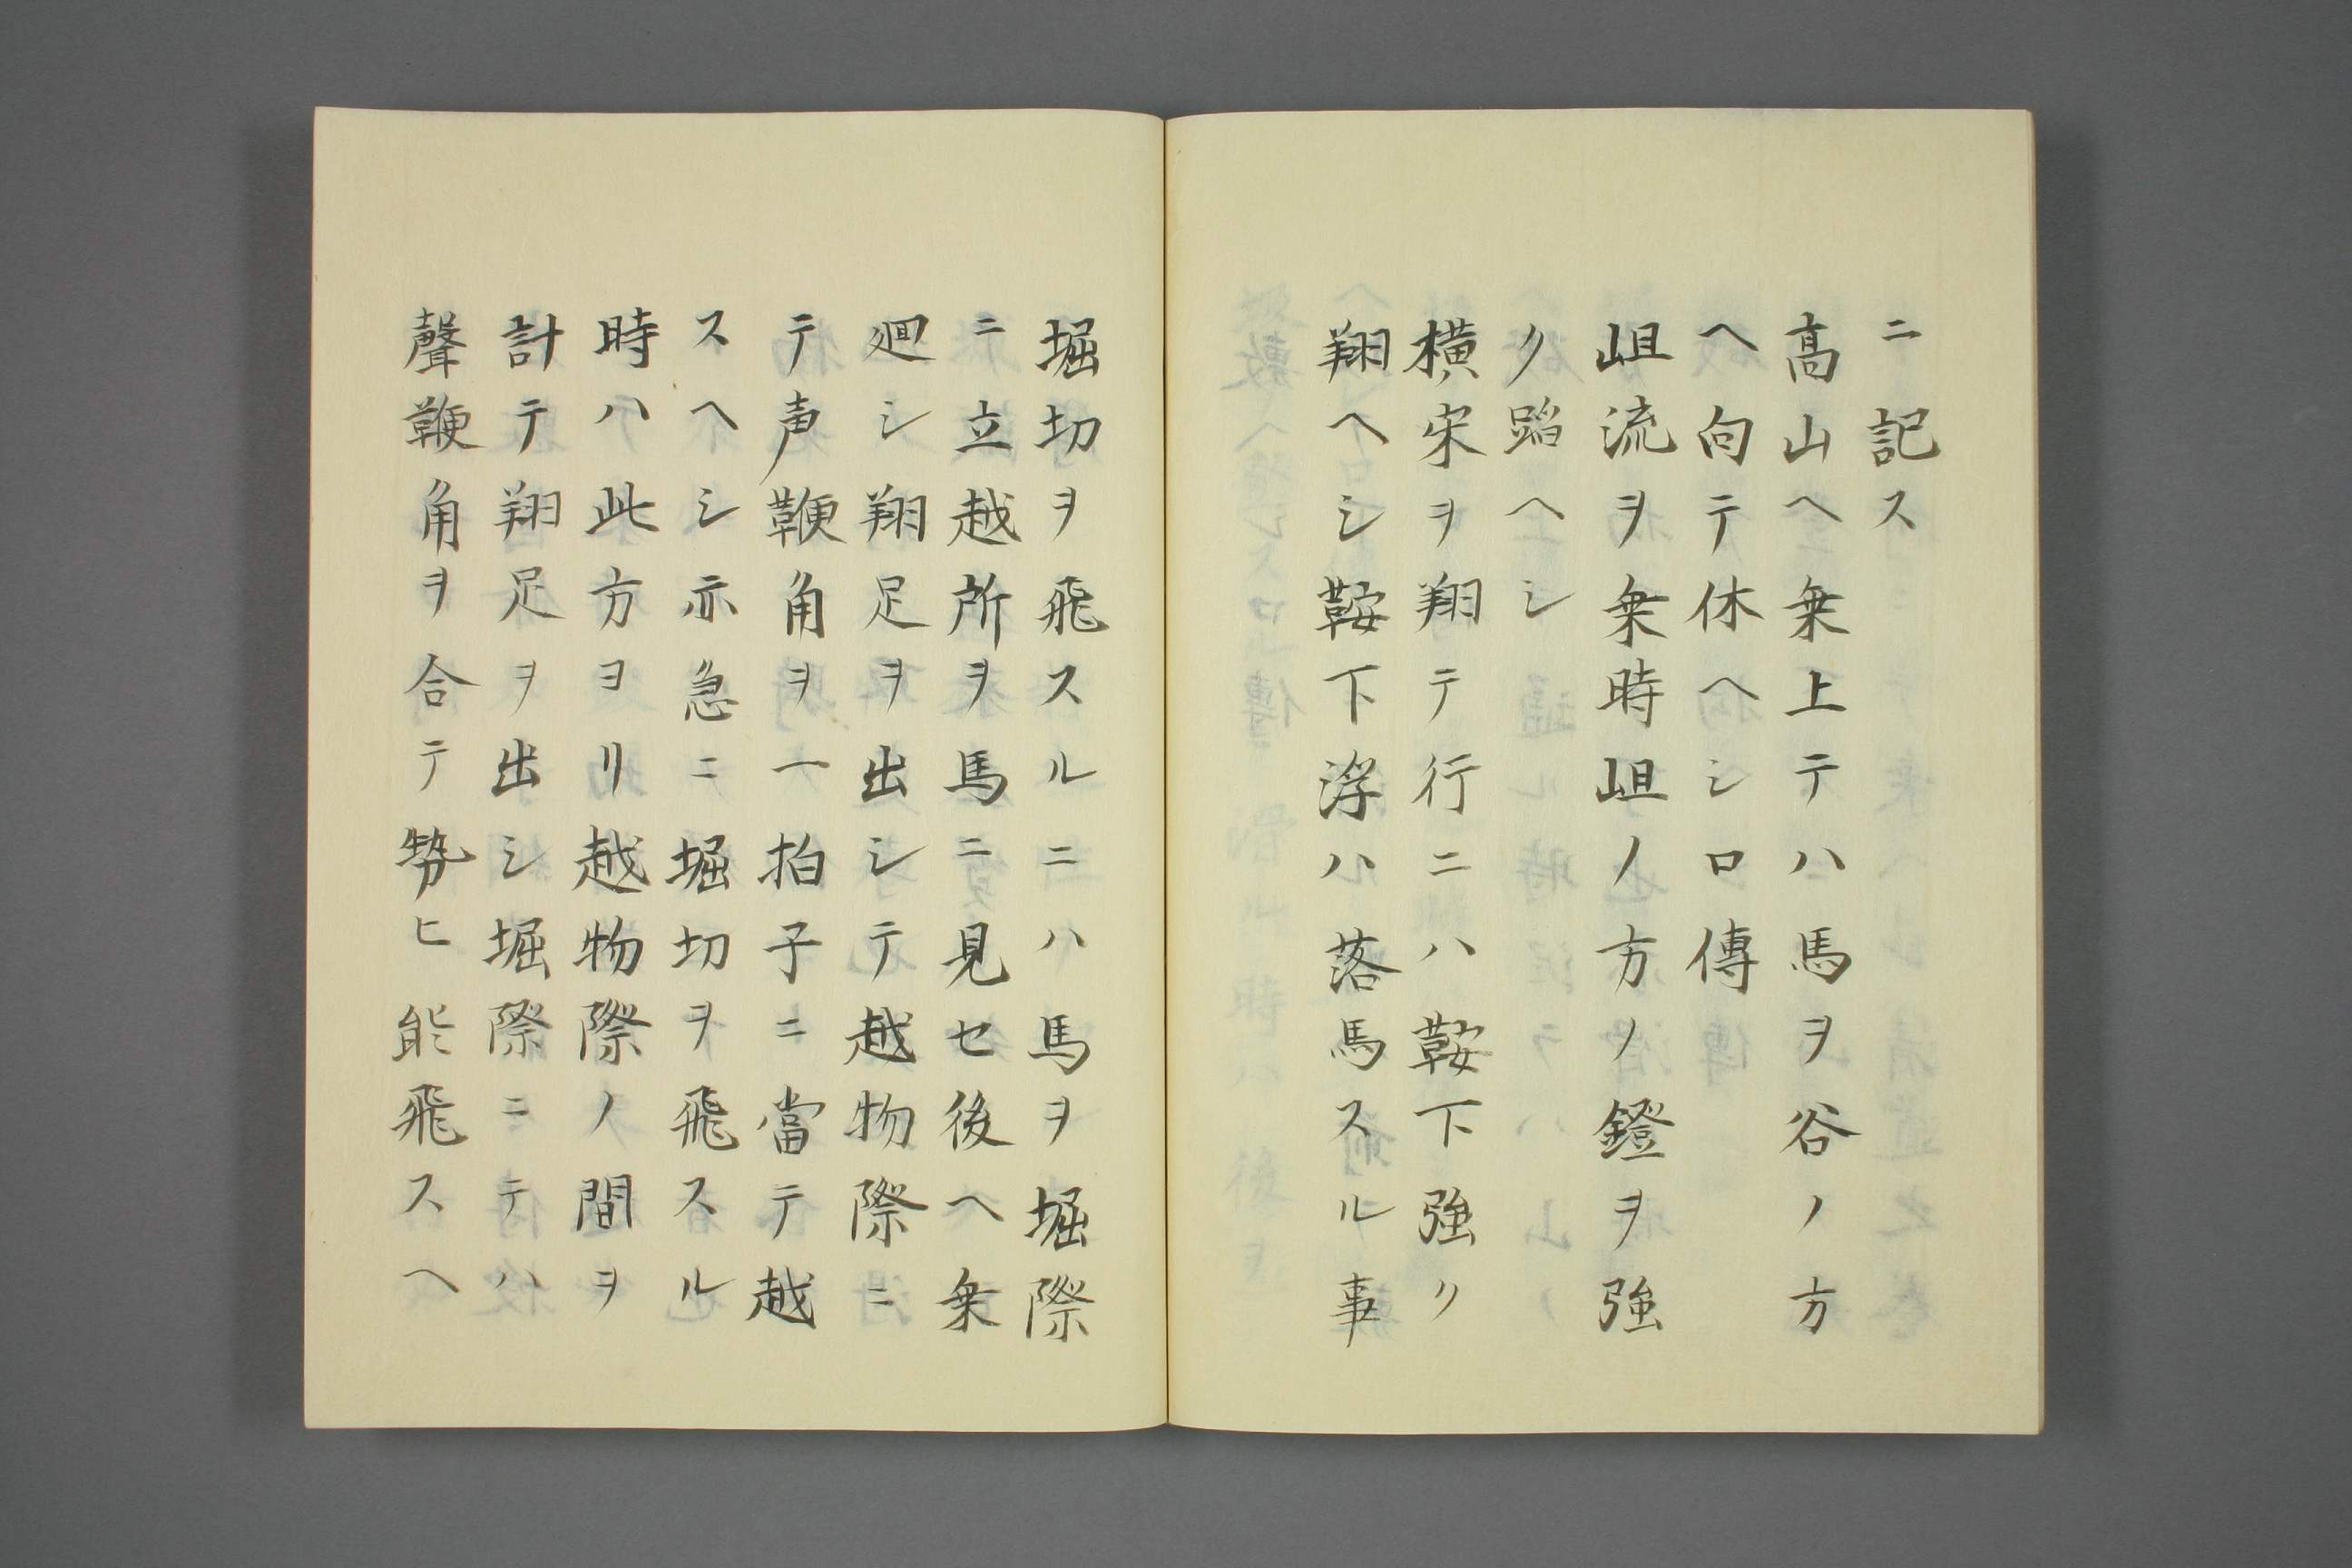 ニ記ス
髙山ヘ乗上テハ馬ヲ谷ノ方
ヘ向テ休ヘシ口傳
岨流ヲ乗時岨ノ方ノ鐙ヲ強
ク蹈ヘシ
横宋ヲ翔テ行ニハ鞍下強ク
翔ヘシ鞍下浮ハ落馬スル事
堀切ヲ飛スルニハ馬ヲ堀際
ニ立越所ヲ馬ニ見セ後ヘ乗
廻シ翔足ヲ出シテ越物際ニ
テ声鞭角ヲ一拍子ニ當テ越
スヘシ亦急ニ堀切ヲ飛スル
時ハ此方ヨリ越物際ノ間ヲ
計テ翔足ヲ出シ堀際ニテハ
聲鞭角ヲ合テ勢ヒ能飛スヘ